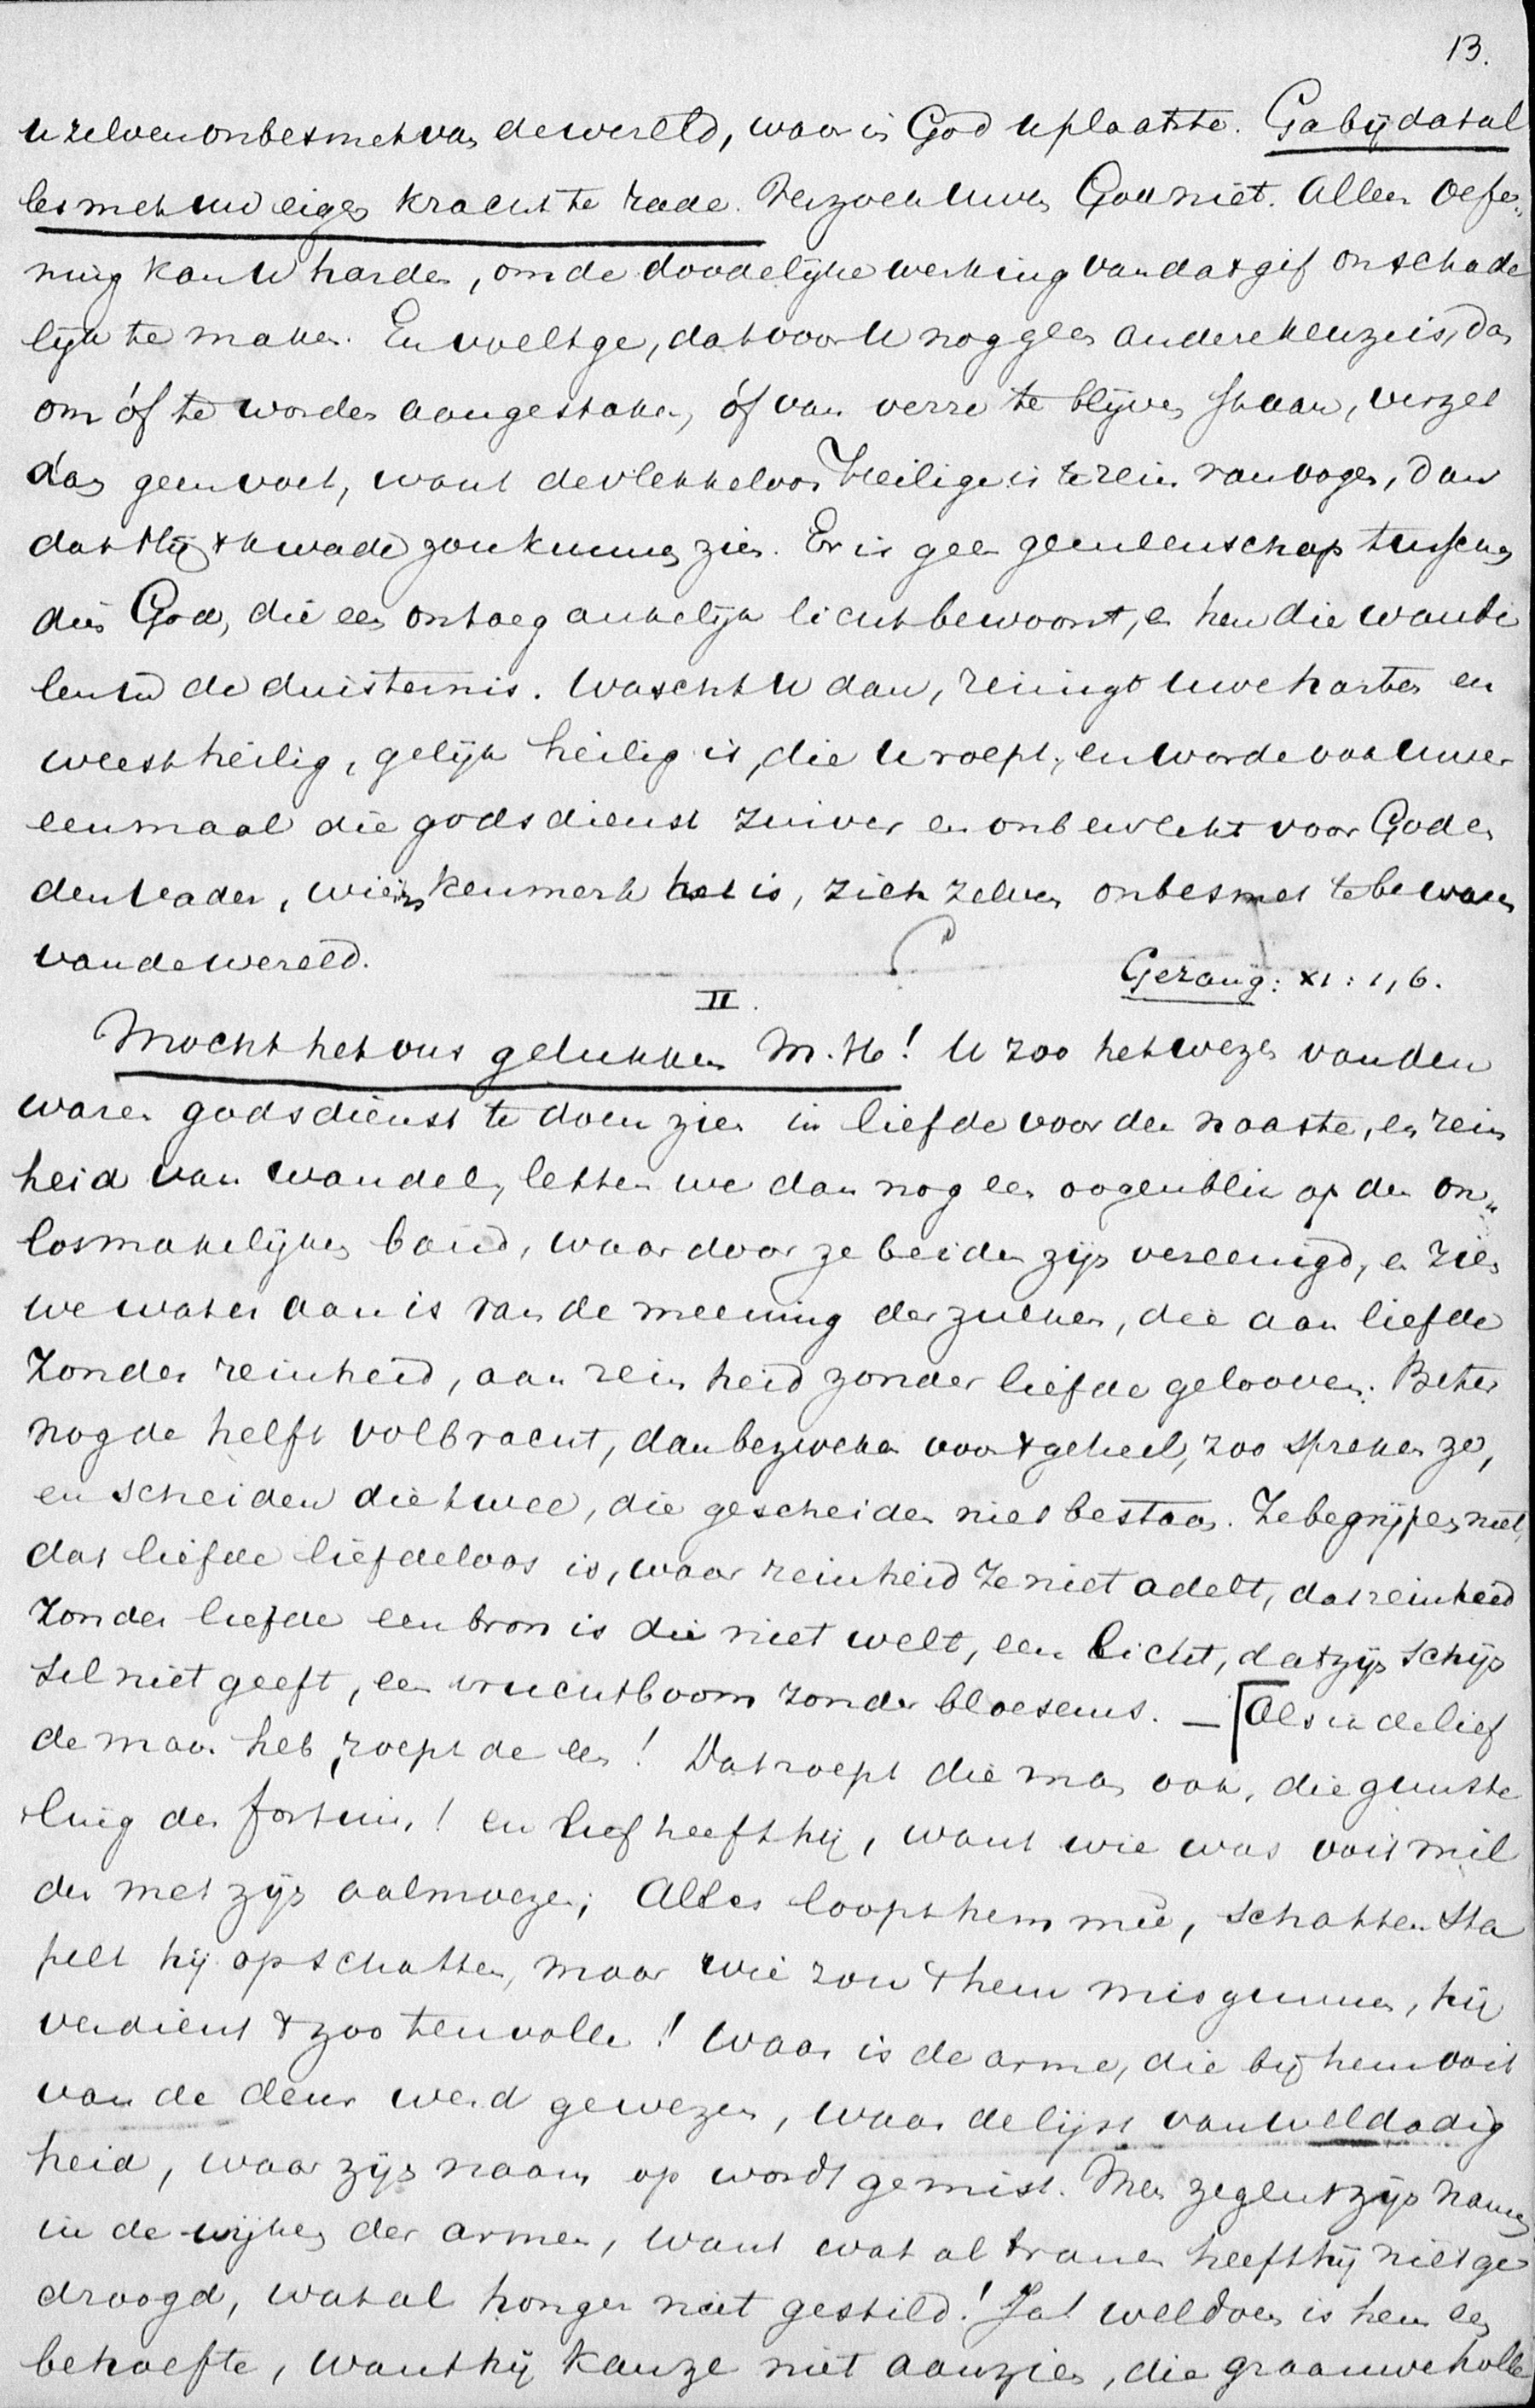 13.
u zelven onbesmet van de wereld, waar in God u plaatste. Ga bij dat al
les met uw eigen kracht te rade. Verzoek Uwen God niet. Alleen oefe„
ning kan U harden, om de doodelijke werking van dat gif onschade
lijk te maken. En voelt ge, dat voor U nog geen andere keuze is, dan
om óf te worden aangestoken, óf van verre te blijven staan, verzet
dan geen voet, want de vlekkeloos Heilige is te rein van oogen, dan
dat Hij 't kwade zou kunnen zien. Er is geen gemeenschap tusschen
dien God, die een ontoegankelijk licht bewoont, en hen die wande
len in de duisternis. Wascht U dan, reinigt uwe harten en
weest heilig, gelijk heilig is, die U roept, en worde ook Uwer
eenmaal die godsdienst zuiver en onbevlekt voor God en
den Vader, wiens kenmerk het is, zich zelven onbesmet te bewaren
van de wereld.
Gezang: XI : 1, 6.
II.
Mocht het ons gelukken M. H! U zoo het wezen van den
waren godsdienst te doen zien in liefde voor den naaste, en rein
heid van wandel, letten we dan nog een oogenblik op den on„
losmakelijken band, waardoor ze beiden zijn vereenigd, en zien
we wat er aan is van de meening der zulken, die aan liefde
zonder reinheid, aan reinheid zonder liefde gelooven. Beter
nog de helft volbracht, dan bezweken voor 't geheel, zoo spreken ze,
en scheiden die twee, die gescheiden niet bestaan. Ze begrijpen niet,
dat liefde liefdeloos is, waar reinheid ze niet adelt, dat reinheid
zonder liefde een bron is die niet welt, een licht, dat zijn schijn
sel niet geeft, een vruchtboom zonder bloesems. — [Als ik de lief
de maar heb, roept de een! Dat roept die man ook, die gunste
ling der fortuin,! en lief heeft hij, want wie was ooit mil
der met zijn aalmoezen; Alles loopt hem meê, schatten sta
pelt hij op schatten, maar wie zou 't hem misgunnen, hij
verdient 't zoo ten volle! Waar is de arme, die bij hem ooit
van de deur werd gewezen, waar de lijst van weldadig
heid, waar zijn naam op wordt gemist. Men zegent zijn naam
in de wijken der armen, want wat al tranen heeft hij niet ge
droogd, wat al honger niet gestild! Ja! weldoen is hem een
behoefte, want hij kan ze niet aanzien, die graauwe holle